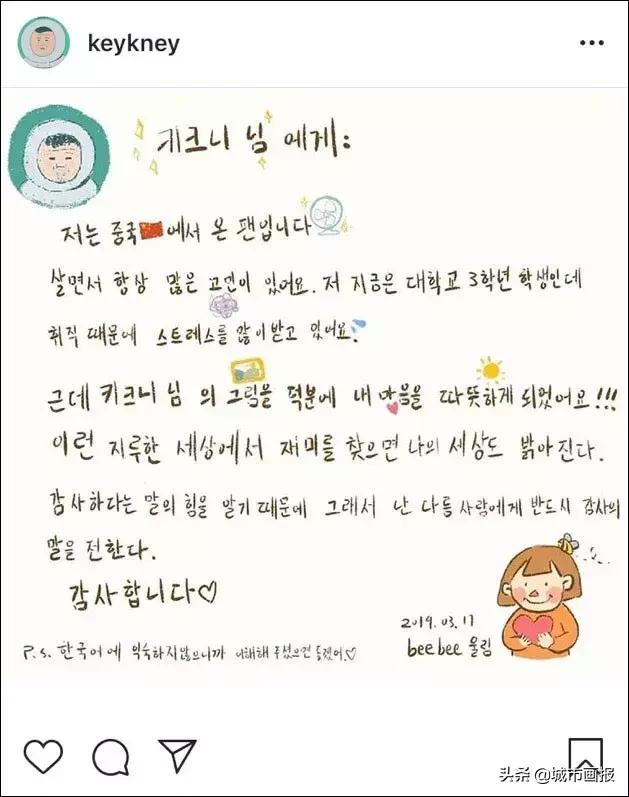 keykney
키크니 님 에게:
저는 중국 에서 온 팬입니다
살면서 항상 많은 고민이 있어요. 저 지금은 대학교 3학년 학생인데
취직 때문에 스트레스를 많이받고 있어요.
근데 키크니 님 의 그림을 덕분에 내 마음을 따뜻하게 되었어요!!!
이런 지루한 세상에서 재미를 찾으면 나의 세상도 밝아진다.
감사하다는 말의 힘을 알기 때문에 그래서 난 다름 사람에게 반드시 감사의
말을 전한다.
감사합니다♡
2019.03.17
beebee 울림
P.s. 한국어에 익숙하지않으니까 이해해 주셨으면 좋겠어♡
头条 @城市画报